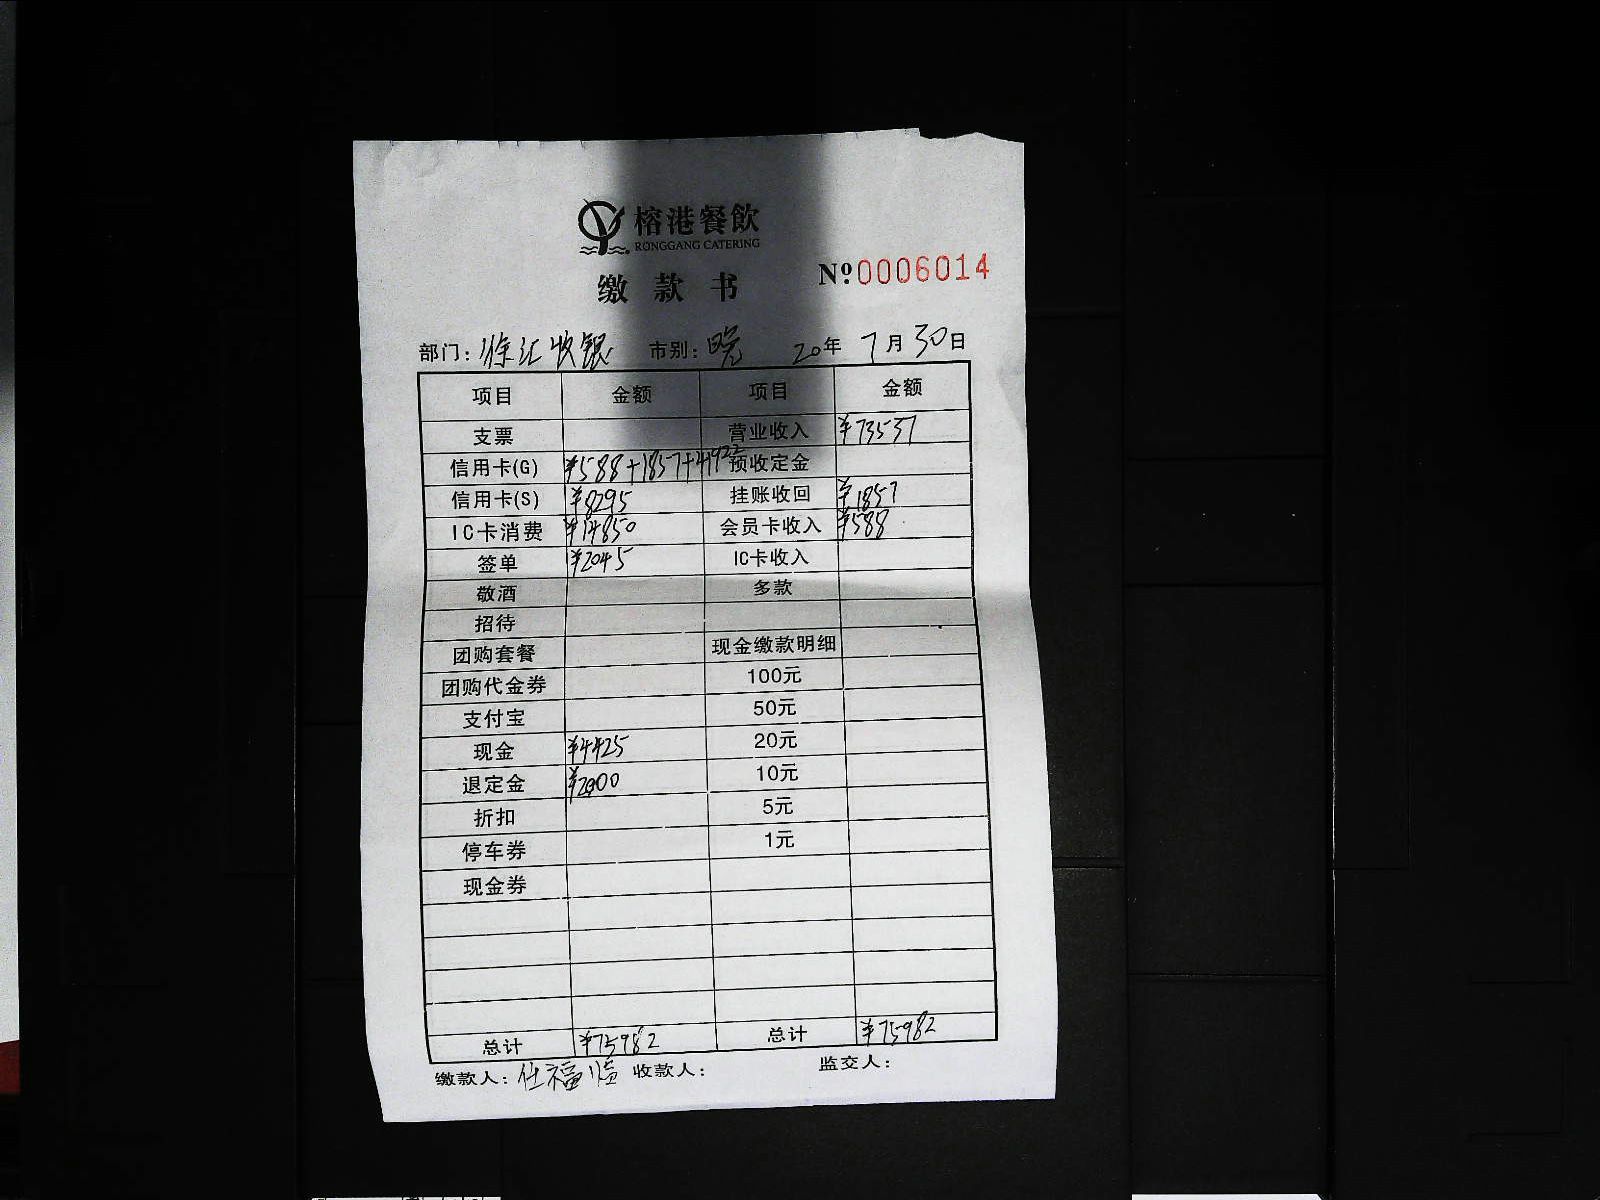 榕港餐飲
RONGGANG CATERING
缴款书 Nº0006014
部门：徐汇收银 市别：晚 20年7月30日
项目 金额 项目 金额
支票 营业收入 ¥73537
信用卡(G) ¥588+1857+41922 预收定金
信用卡(S) ¥8295 挂账收回 ¥1857
IC卡消费 ¥14850 会员卡收入 ¥588
签单 ¥2045 IC卡收入
敬酒 多款
招待
团购套餐 现金缴款明细
团购代金券 100元
支付宝 50元
现金 ¥4425 20元
退定金 ¥2000 10元
折扣 5元
停车券 1元
现金券
总计 ¥75982 总计 ¥75982
缴款人：任福临 收款人： 监交人：